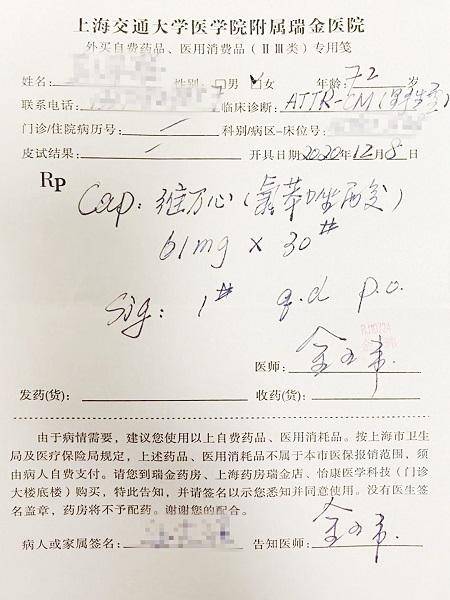 上海交通大学医学院附属瑞金医院
外买自费药品、医用消费品（ⅡⅢ类）专用笺
姓名： 性别：□男 ☑女 年龄：72 岁
联系电话： 临床诊断：ATTR-CM(野生型)
门诊/住院病历号：/ 科别/病区-床位号：
皮试结果：/ 开具日期2020年12月8日
Rp
Cap：维万心（氯苯唑酸）
61mg × 30#
Sig： 1# q.d p.o.
医师：
发药(货)： 收药(货)：
由于病情需要，建议您使用以上自费药品、医用消耗品。按上海市卫生
局及医疗保险局规定，上述药品、医用消耗品不属于本市医保报销范围，须
由病人自费支付。请您到瑞金药房、上海药房瑞金店、怡康医学科技（门诊
大楼底楼）购买，特此告知，并请签名以示您悉知并同意使用。没有医生签
名盖章，药房将不予配药。谢谢您的配合。
病人或家属签名： 告知医师：